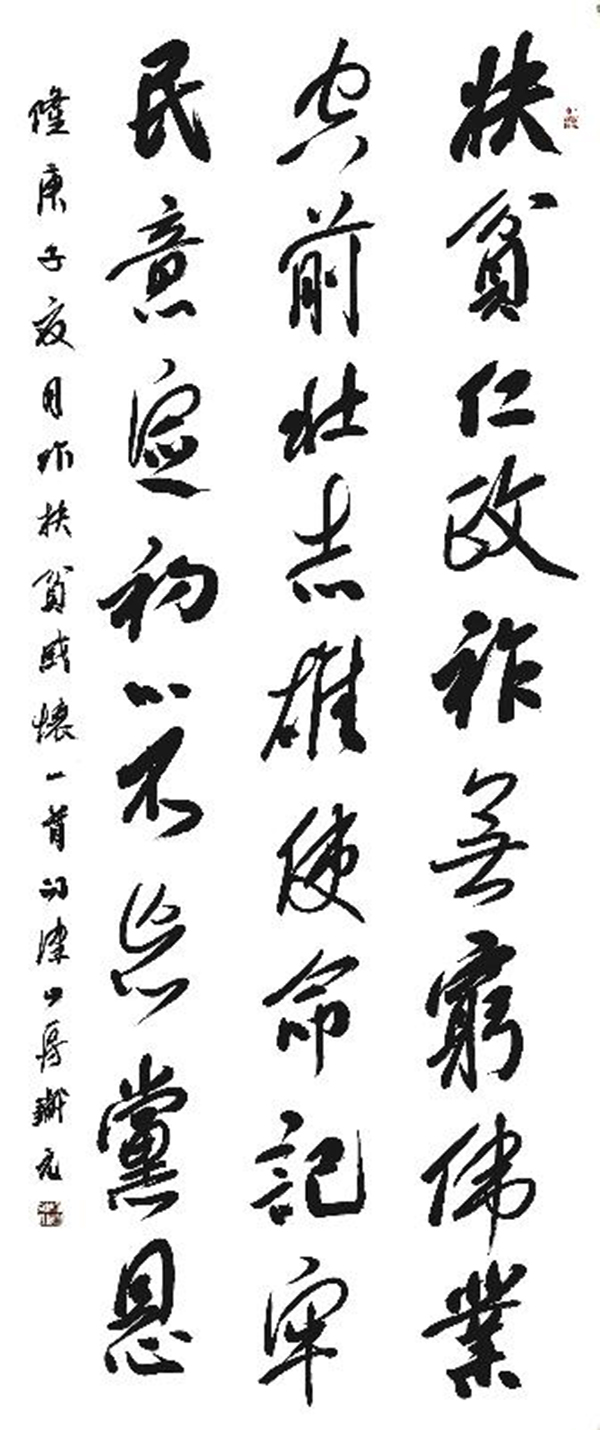 扶貧仁政祚無窮偉業
空前壯志雄使命記牢
民意初心不忘黨恩
隆庚子夏月作扶貧感懷一首津元